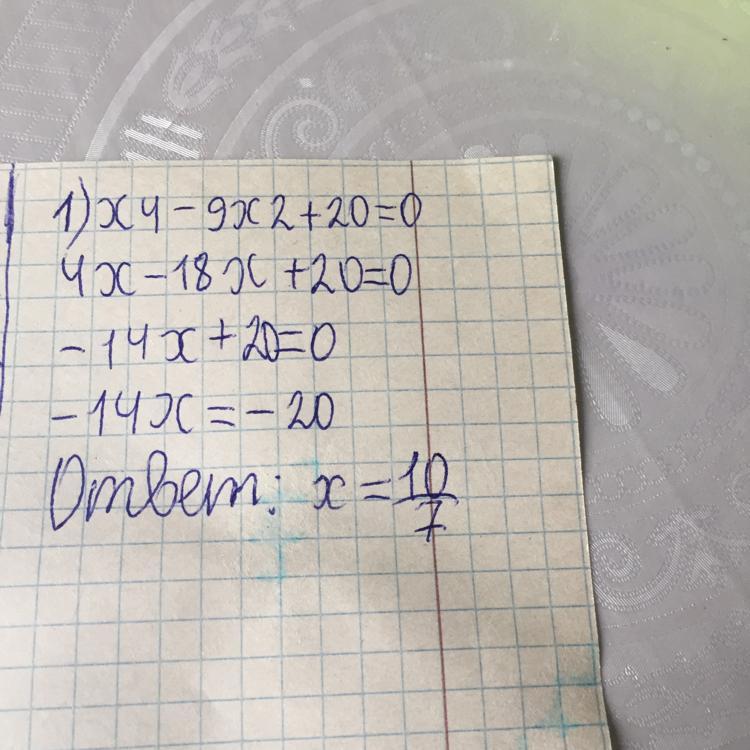 1) x4-9x2+20=0
4x-18x+20=0
-14x+20=0
-14x=-20
Ответ: x=10/7